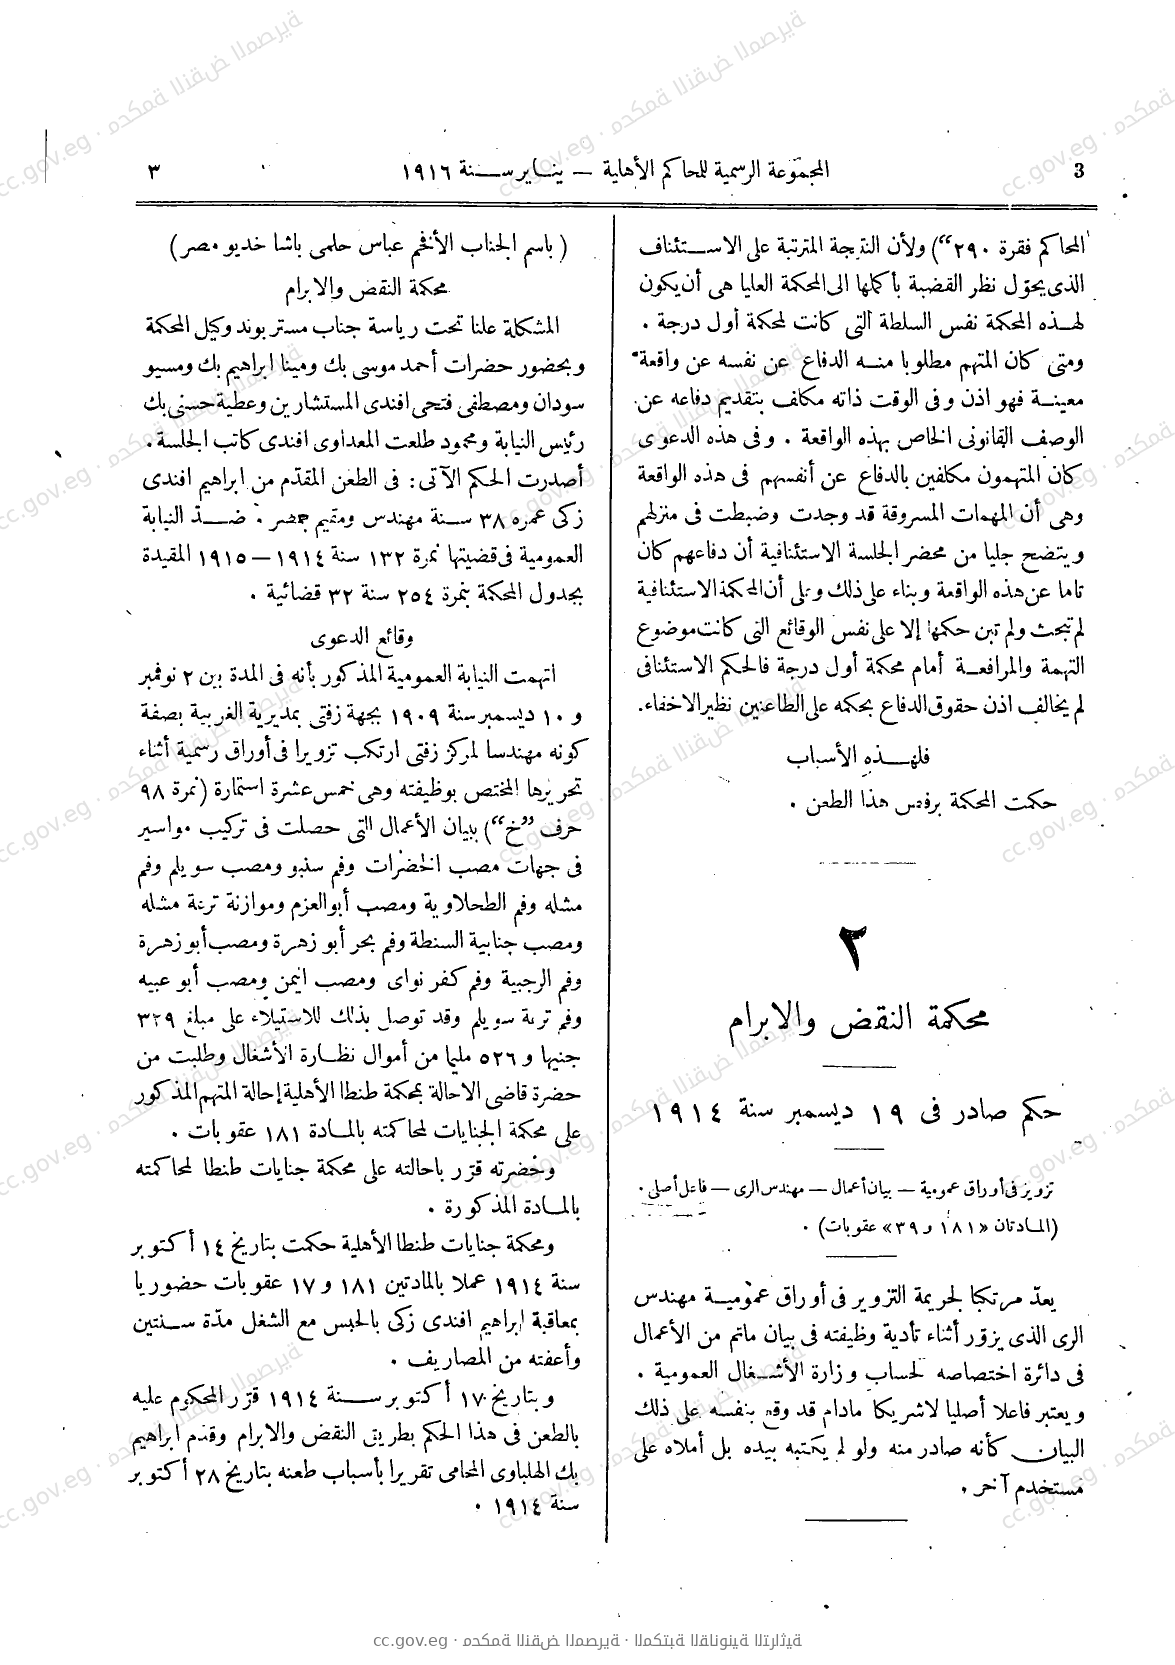 3
المجموعة الرسمية للمحاكم الأهلية — ينـاير سـنة ١٩١٦
٣
المحاكم فقرة ٢٩٠“) ولأن النتيجة المترتبة على الاسـتئناف
الذى يحوّل نظر القضية بأكملها الى المحكمة العليا هى أن يكون
لهـذه المحكمة نفس السلطة التى كانت لمحكمة أول درجة .
ومتى كان المتهم مطلوبا منـه الدفاع عن نفسه عن واقعة
معينـة فهو اذن وفى الوقت ذاته مكلف بتقديم دفاعه عن
الوصف القانونى الخاص بهذه الواقعة . وفى هذه الدعوى
كان المتهمون مكلفين بالدفاع عن أنفسهم فى هذه الواقعة
وهى أن المهمات المسروقة قد وجدت وضبطت فى منزلهم
ويتضح جليا من محضر الجلسة الاستئنافية أن دفاعهم كان
تاما عن هذه الواقعة وبناء على ذلك وعلى أن المحكمة الاستئنافية
لم تبحث ولم تبن حكمها إلا على نفس الوقائع التى كانت موضوع
التهمة والمرافعـة أمام محكمة أول درجة فالحكم الاستئنافى
لم يخالف اذن حقوق الدفاع بحكمه على الطاعنين نظير الاخفاء.
فلهـذه الأسباب
حكمت المحكمة برفض هذا الطعن .
٢
محكمة النقض والابرام
حكم صادر فى ١٩ ديسمبر سنة ١٩١٤
تزوير فى أوراق عمومية — بيان أعمال — مهندس الرى — فاعل أصلى .
(المـادتان «١٨١ و ٣٩» عقوبات) .
يعدّ مرتكبا لجريمة التزوير فى أوراق عموميـة مهندس
الرى الذى يزوّر أثناء تأدية وظيفته فى بيان ماتم من الأعمال
فى دائرة اختصاصه لحساب وزارة الأشـغال العمومية .
ويعتبر فاعلا أصليا لاشريكا مادام قد وقع بنفسه على ذلك
البيان كأنه صادر منه ولو لم يكتبه بيده بل أملاه على
مستخدم آخر .
( باسم الجناب الأفخم عباس حلمى باشا خديو مصر)
محكمة النقض والابرام
المشكلة علنا تحت رياسة جناب مستر بوند وكيل المحكمة
وبحضور حضرات أحمد موسى بك ومينا ابراهيم بك ومسيو
سودان ومصطفى فتحى افندى المستشارين وعطية حسنى بك
رئيس النيابة ومحمود طلعت المعداوى افندى كاتب الجلسة .
أصدرت الحكم الآتى : فى الطعن المقدّم من ابراهيم افندى
زكى عمره ٣٨ سـنة مهندس ومقيم بمصر . ضـد النيابة
العمومية فى قضيتها نمرة ١٣٢ سنة ١٩١٤ — ١٩١٥ المقيدة
بجدول المحكمة بنمرة ٢٥٤ سنة ٣٢ قضائية .
وقائع الدعوى
اتهمت النيابة العمومية المذكور بأنه فى المدة بين ٢ نوفمبر
و ١٠ ديسمبر سنة ١٩٠٩ بجهة زفتى بمديرية الغربية بصفة
كونه مهندسا لمركز زفتى ارتكب تزويرا فى أوراق رسمية أثناء
تحريرها المختص بوظيفته وهى خمس عشرة استمارة (نمرة ٩٨
حرف ”خ“) ببيان الأعمال التى حصلت فى تركيب مواسير
فى جهات مصب الخضرات وفم سنبو ومصب سويلم وفم
مشله وفم الطحلاوية ومصب أبوالعزم وموازنة ترعة مشله
ومصب جنابية السنطة وفم بحر أبو زهرة ومصب أبو زهرة
وفم الرجبية وفم كفر نواى ومصب انيمن ومصب أبو عبيه
وفم ترعة سويلم وقد توصل بذلك للاستيلاء على مبلغ ٣٢٩
جنيها و ٥٢٦ مليما من أموال نظـارة الأشغال وطلبت من
حضرة قاضى الاحالة بمحكمة طنطا الأهلية إحالة المتهم المذكور
على محكمة الجنايات لمحاكمته بالمـادة ١٨١ عقوبات .
وحضرته قرّر باحالته على محكمة جنايات طنطا لمحاكمته
بالمـادة المذكورة .
ومحكمة جنايات طنطا الأهلية حكمت بتاريخ ١٤ أكتوبر
سنة ١٩١٤ عملا بالمادتين ١٨١ و ١٧ عقوبات حضوريا
بمعاقبة ابراهيم افندى زكى بالحبس مع الشغل مدّة سـنتين
وأعفته من المصاريف .
وبتاريخ ١٧ أكتوبر سـنة ١٩١٤ قرّر المحكوم عليه
بالطعن فى هذا الحكم بطريق النقض والابرام وقدّم ابراهيم
بك الهلباوى المحامى تقريرا بأسباب طعنه بتاريخ ٢٨ أكتوبر
سنة ١٩١٤ .
cc.gov.eg · محكمة النقض المصرية · المكتبة القانونية التراثية